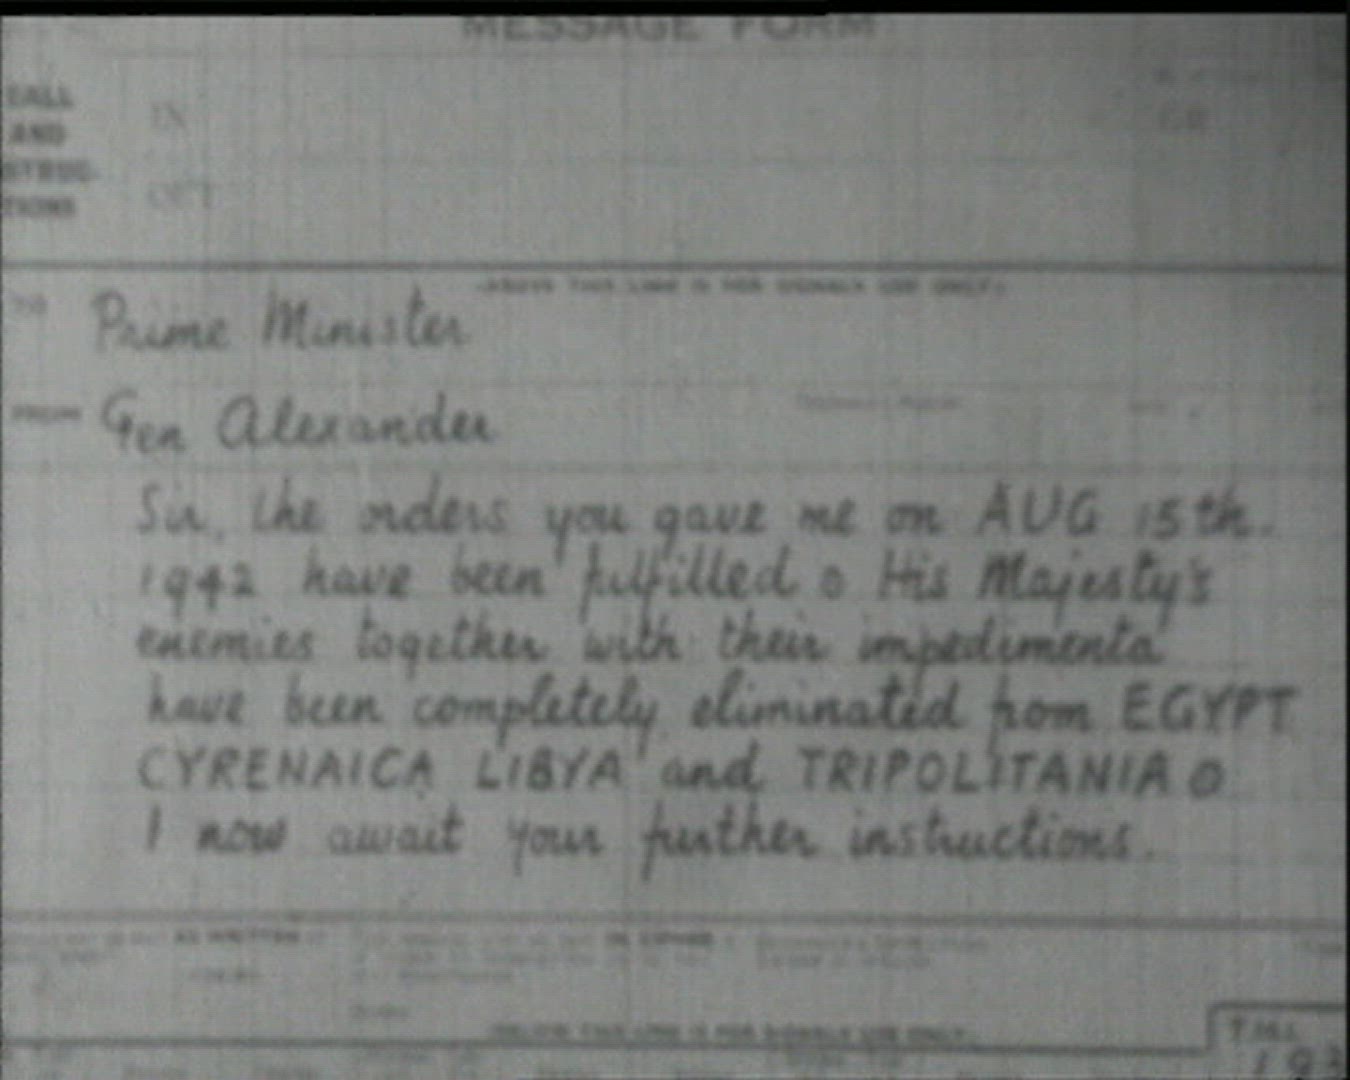 MESSAGE FORM
CALL
AND
IN
GR
OUT
TIONS
ABOVE THIS LINE IS FOR SIGNALS USE ONLY
TO Prime Minister
FROM Gen Alexander
Sir, the orders you gave me on AUG 15th.
1942 have been fulfilled o His Majesty's
enemies together with their impedimenta
have been completely eliminated from EGYPT
CYRENAICA LIBYA and TRIPOLITANIA o
I now await your further instructions.
AS WRITTEN
IN CIPHER
BELOW THIS LINE IS FOR SIGNALS USE ONLY